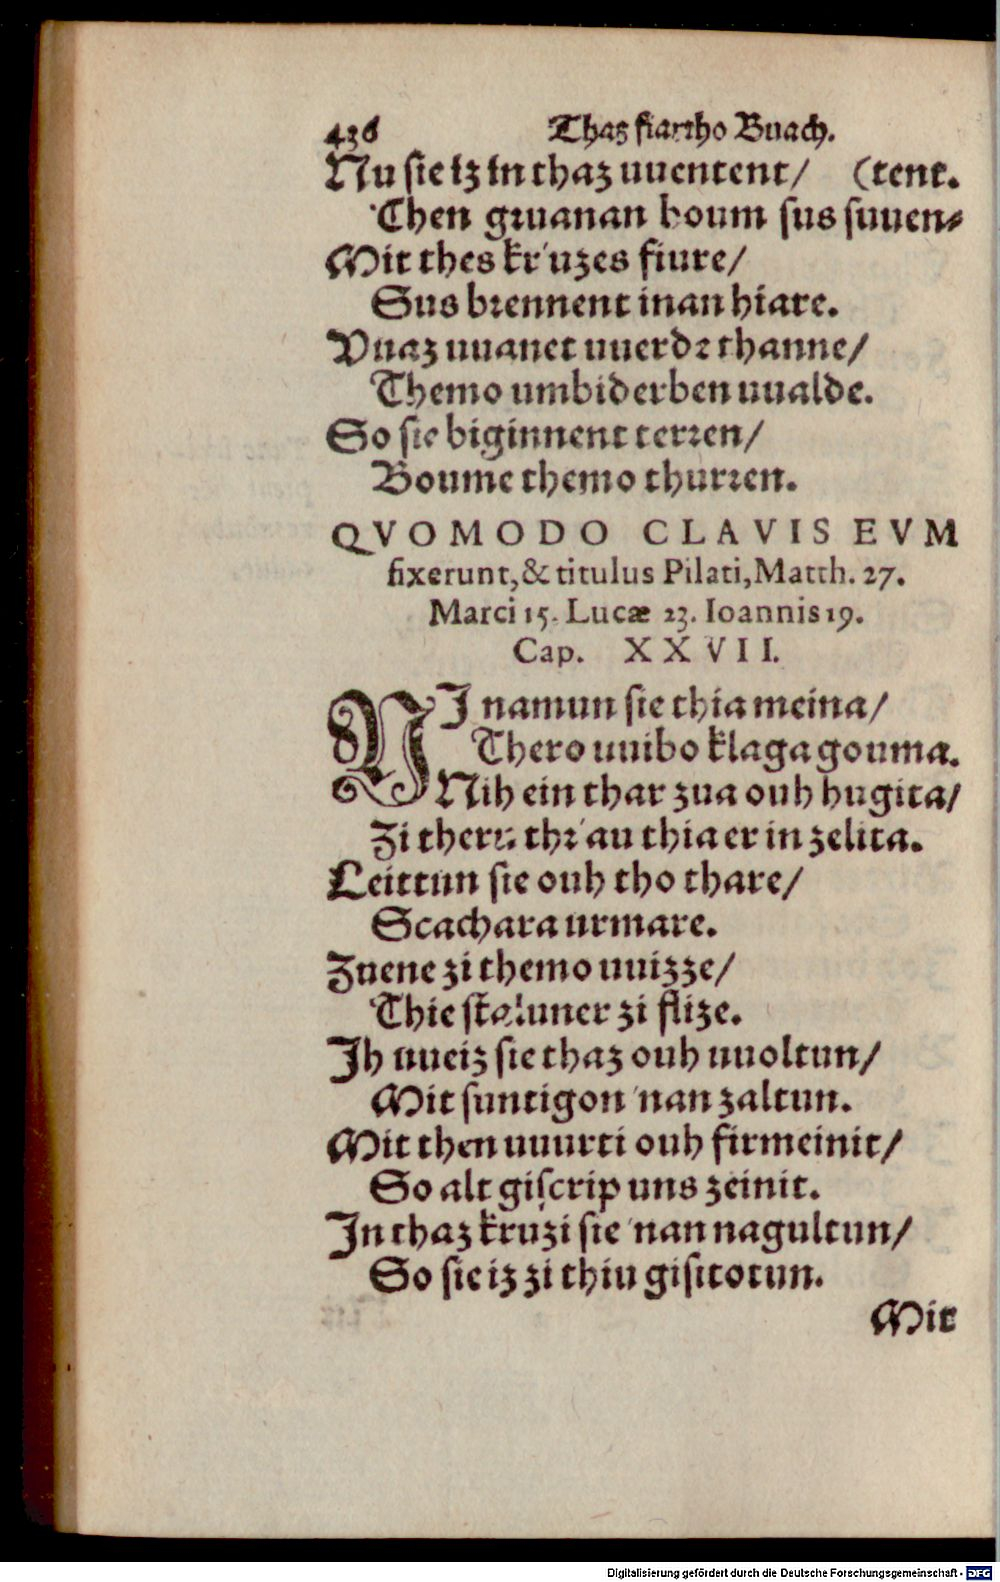 436 Thaz fiartho Buach.
Nu sie iz in thaz uuentent/ (tent.
Then gruanan boum sus suuen⸗
Mit thes kr'uzes fiure/
Sus brennent inan hiare.
Vuaz uuanet uuerde thanne/
Themo umbiderben uualde.
So sie biginnent terren/
Boume themo thurren.
QVOMODO CLAVIS EVM
fixerunt, & titulus Pilati, Matth. 27.
Marci 15. Lucæ 23. Ioannis 19.
Cap. XXVII.
NI namun sie thia meina/
Thero uuibo klaga gouma.
Nih ein thar zua ouh hugita/
Zi theru thr'au thia er in zelita.
Leittun sie ouh tho thare/
Scachara urmare.
Zuene zi themo uuizze/
Thie stal'uner zi flize.
Ih uueiz sie thaz ouh uuoltun/
Mit suntigon 'nan zaltun.
Mit then uuurti ouh firmeinit/
So alt giscrip uns zeinit.
In thaz kruzi sie 'nan nagultun/
So sie iz zi thiu gisitotun.
Mit
Digitalisierung gefördert durch die Deutsche Forschungsgemeinschaft - DFG